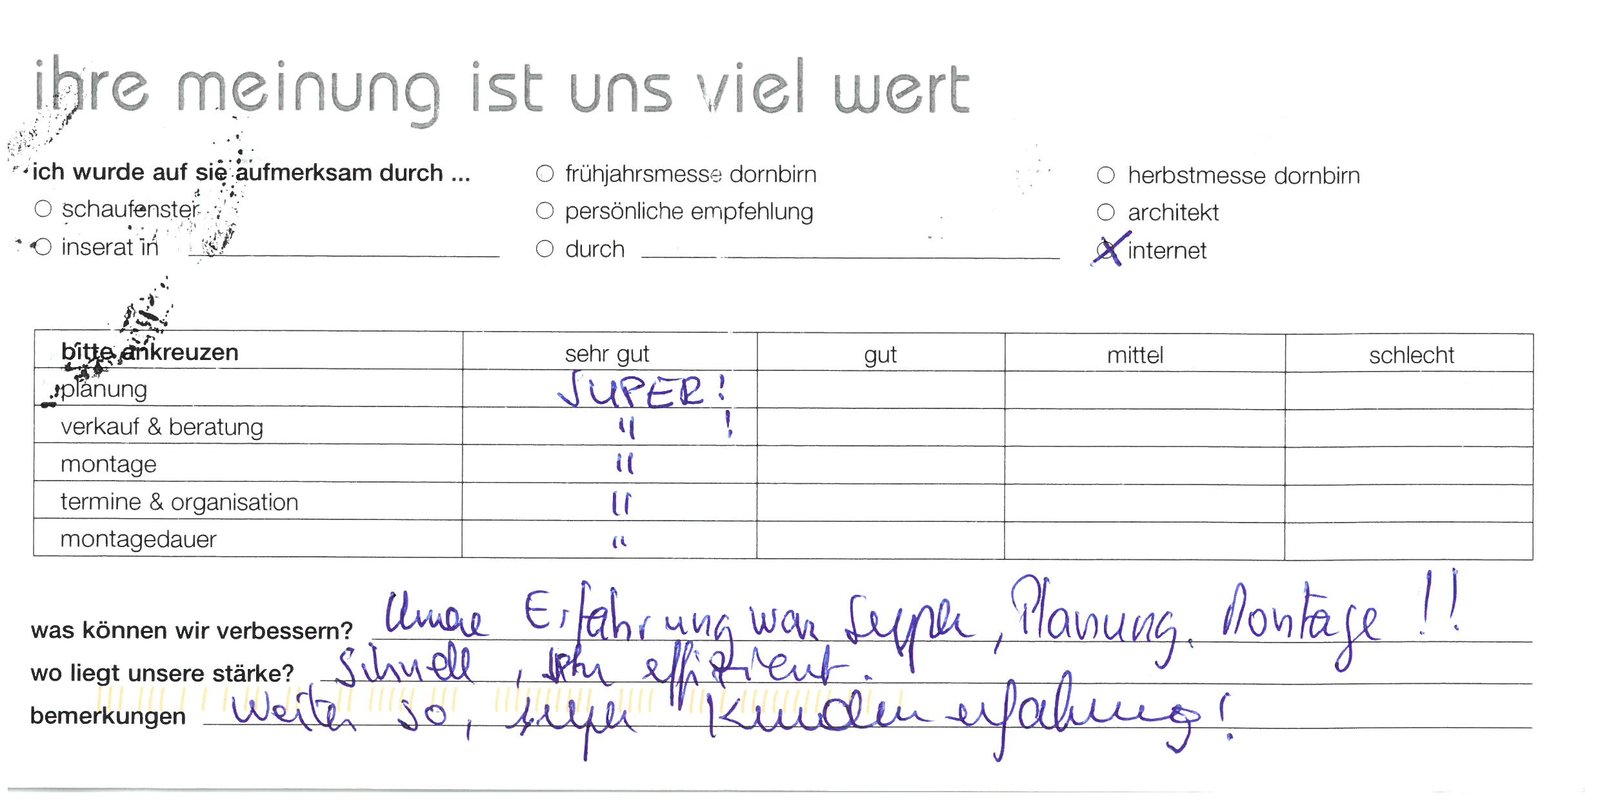 ihre meinung ist uns viel wert
ich wurde auf sie aufmerksam durch ...
○ frühjahrsmesse dornbirn
○ herbstmesse dornbirn
○ schaufenster
○ persönliche empfehlung
○ architekt
○ inserat in
○ durch
X internet
bitte ankreuzen sehr gut gut mittel schlecht
planung SUPER!
verkauf & beratung " !
montage "
termine & organisation "
montagedauer "
was können wir verbessern? Unsere Erfahrung war super, Planung, Montage !!
wo liegt unsere stärke? Schnell, sehr effizient.
bemerkungen Weiter so, super Kundenerfahrung!